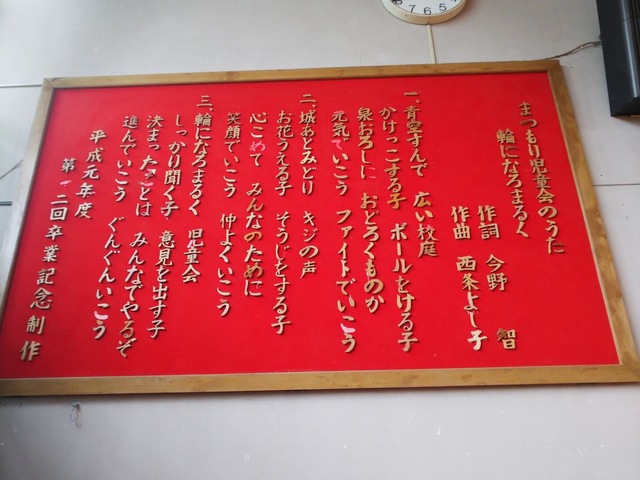 まつもり児童会のうた
輪になろまるく
作詞 今野 智
作曲 西条よし子
一、青空すんで 広い校庭
かけっこする子 ボールをける子
泉おろしに おどろくものか
元気でいこう ファイトでいこう
二、城あとみどり キジの声
お花うえる子 そうじをする子
心こめて みんなのために
笑顔でいこう 仲よくいこう
三、輪になろまるく 児童会
しっかり聞く子 意見を出す子
決まったことは みんなでやるぞ
進んでいこう ぐんぐんいこう
平成元年度
第十二回卒業記念制作
8 7 6 5 4